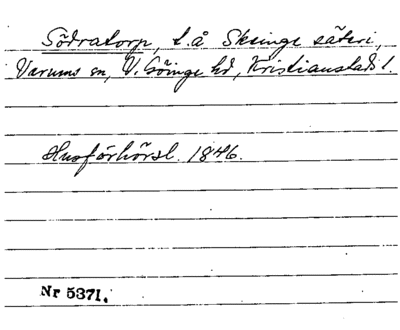 Södratorp, t.å Skeinge säteri,
Varums sn, V. Göinge hd, Kristianstads l.
Husförhörsl. 1846.
Nr 5371.